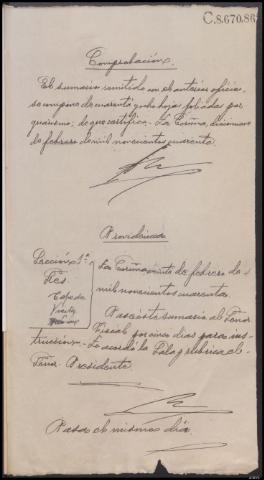 C.8.670.86
Comprobación.
El sumario remitido con el anterior oficio,
se compone de cuarenta y ocho hojas foliadas por
guarismo; de que certifico. La Coruña, diecinueve
de febrero de mil novecientos cuarenta.
Providencia
Sección 1ª
Sres.
Tejeda
La Coruña, veinte de febrero de
mil novecientos cuarenta.
Pase este sumario al Señor
Fiscal por cinco días para ins-
trucción. Lo acordó la Sala y rubrica el
Señor Presidente.
Pasa el mismo día.